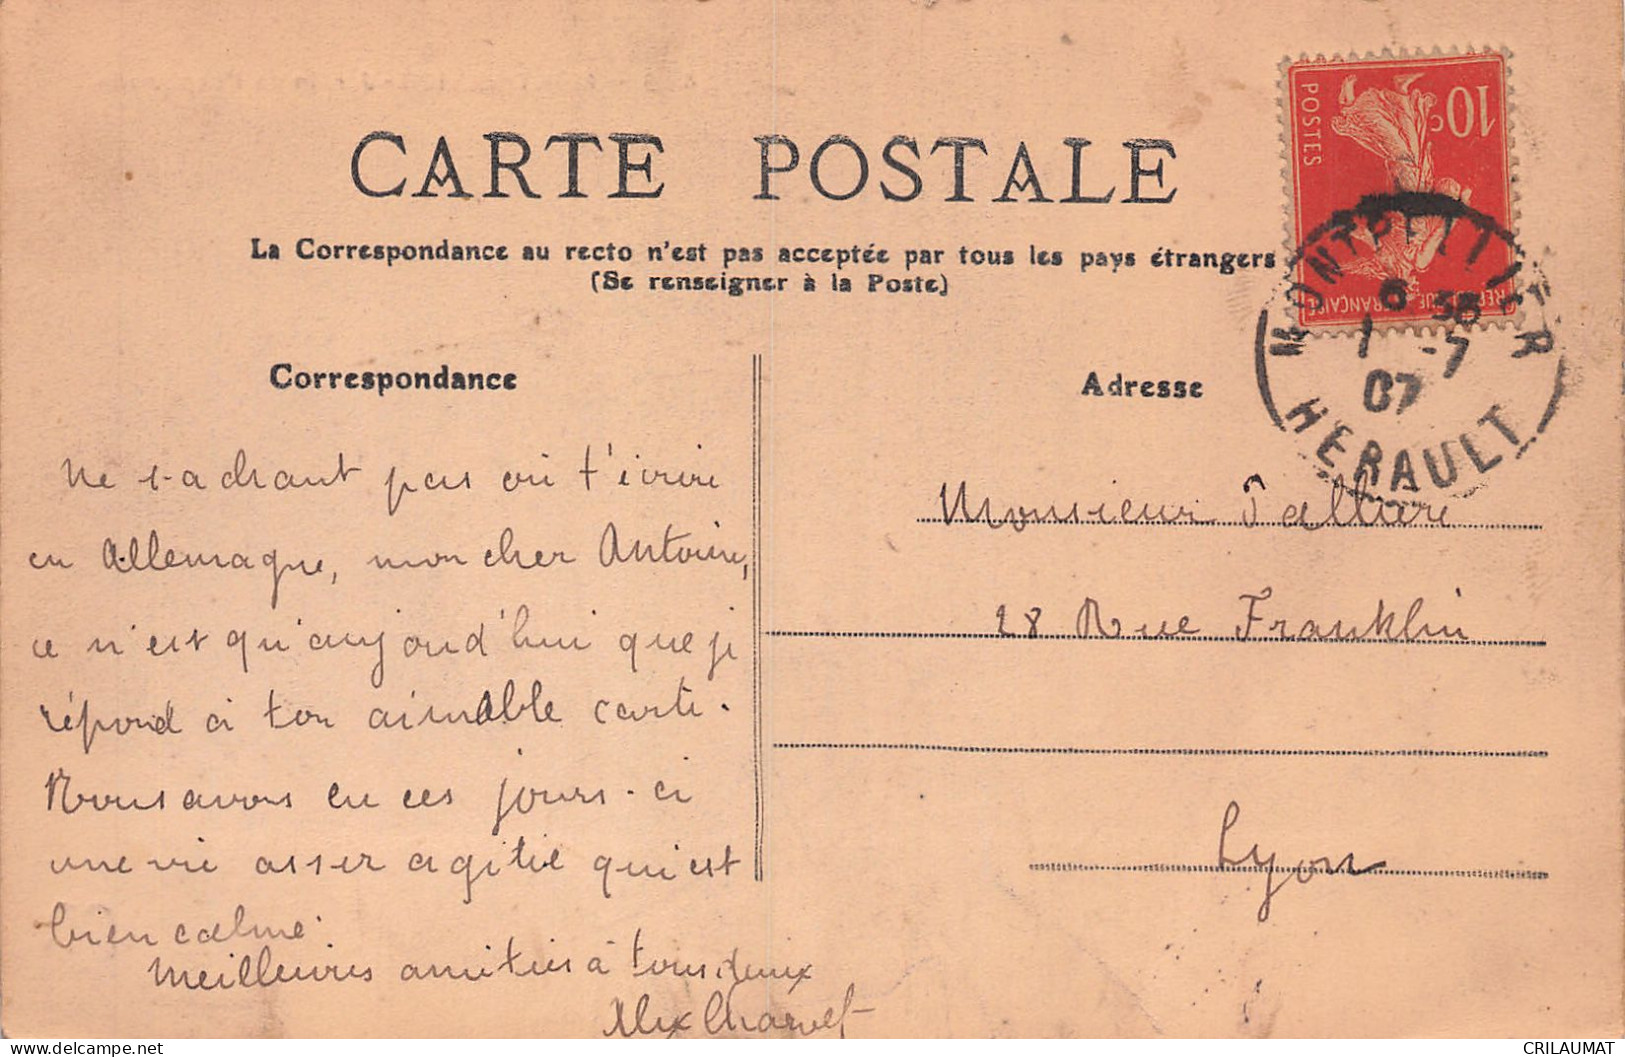 CARTE POSTALE
La Correspondance au recto n'est pas acceptée par tous les pays étrangers
(Se renseigner à la Poste)
10c
POSTES
REPUBLIQUE FRANÇAISE
MONTPELLIER
1 -7
07
HERAULT
Correspondance
Ne sachant pas où t'écrire
en Allemagne, mon cher Antoine,
ce n'est qu'aujourd'hui que je
répond à ton aimable carte.
Nous avons eu ces jours-ci
une vie assez agitée qui est
bien calme.
Meilleures amitiés à tous deux
Alex Charvet
Adresse
Monsieur
28 Rue Franklin
Lyon
© delcampe.net
CRILAUMAT